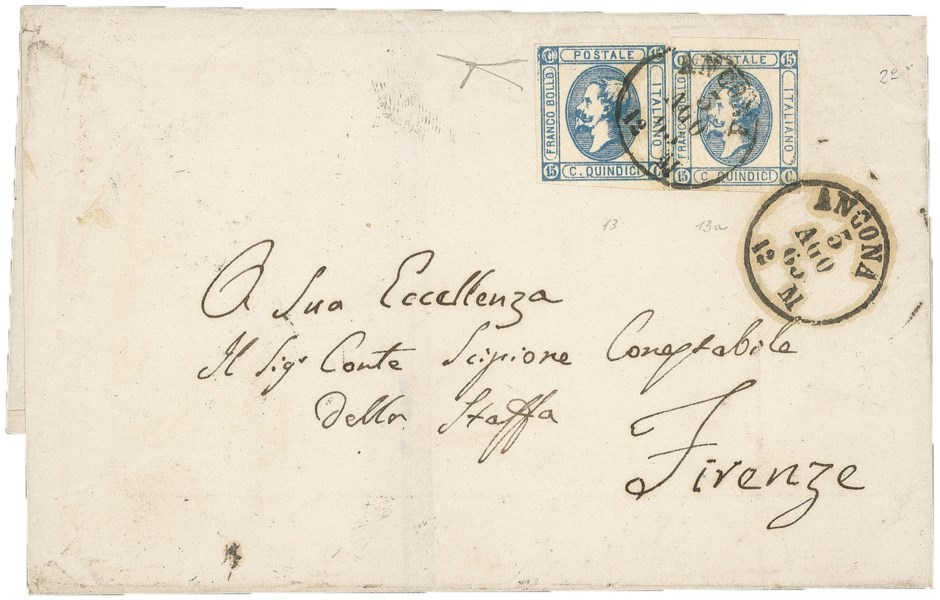 C. POSTALE 15
FRANCO BOLLO
ITALIANO
15 C. QUINDICI C.
POSTALE 15
FRANCO BOLLO
ITALIANO
15 C. QUINDICI C.
ANCONA
5
AGO
12 M
2º
13 13a
ANCONA
5
AGO
63
12 M
A Sua Eccellenza
Il Sigr Conte Scipione Conestabile
della Staffa
Firenze